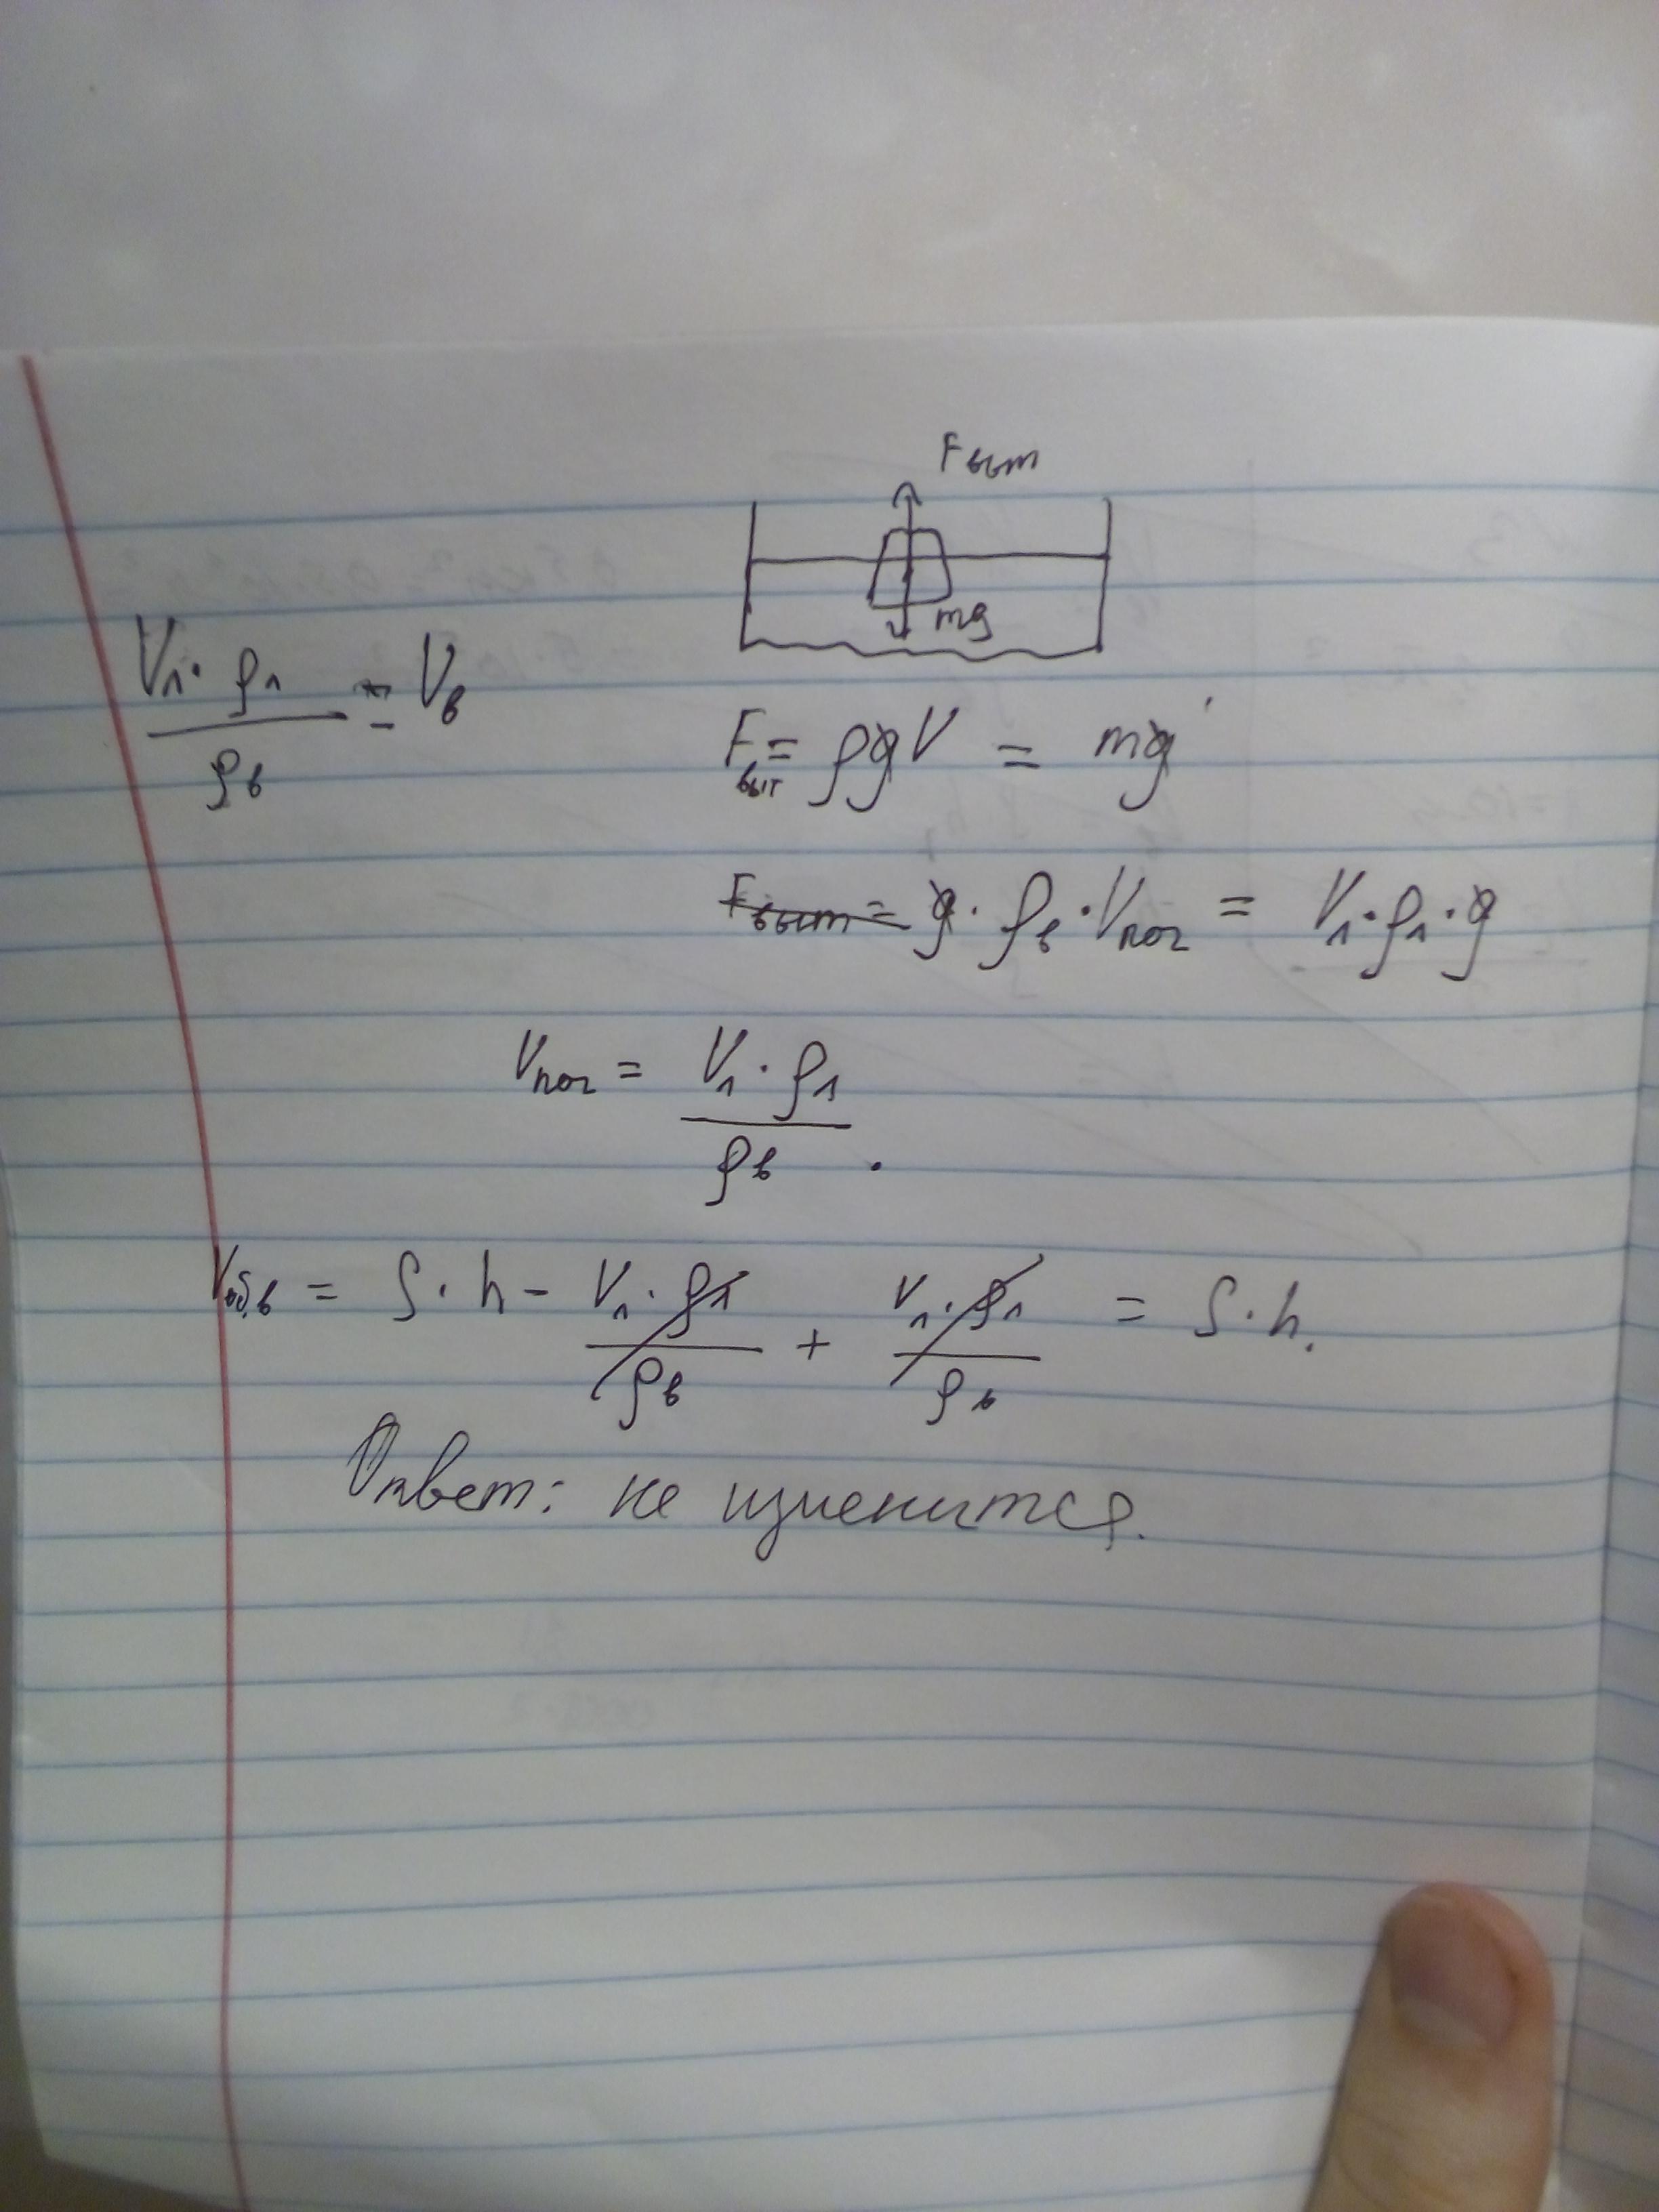 Fвыт
mg
V₁·ρ₁/ρв = Vв
Fвыт = ρgV = mg
Fвыт = g·ρв·Vпог = V₁·ρ₁·g
Vпог = V₁·ρ₁/ρв.
Vоб.в = S·h - V₁·ρ₁/ρв + V₁·ρ₁/ρв = S·h.
Ответ: не изменится.